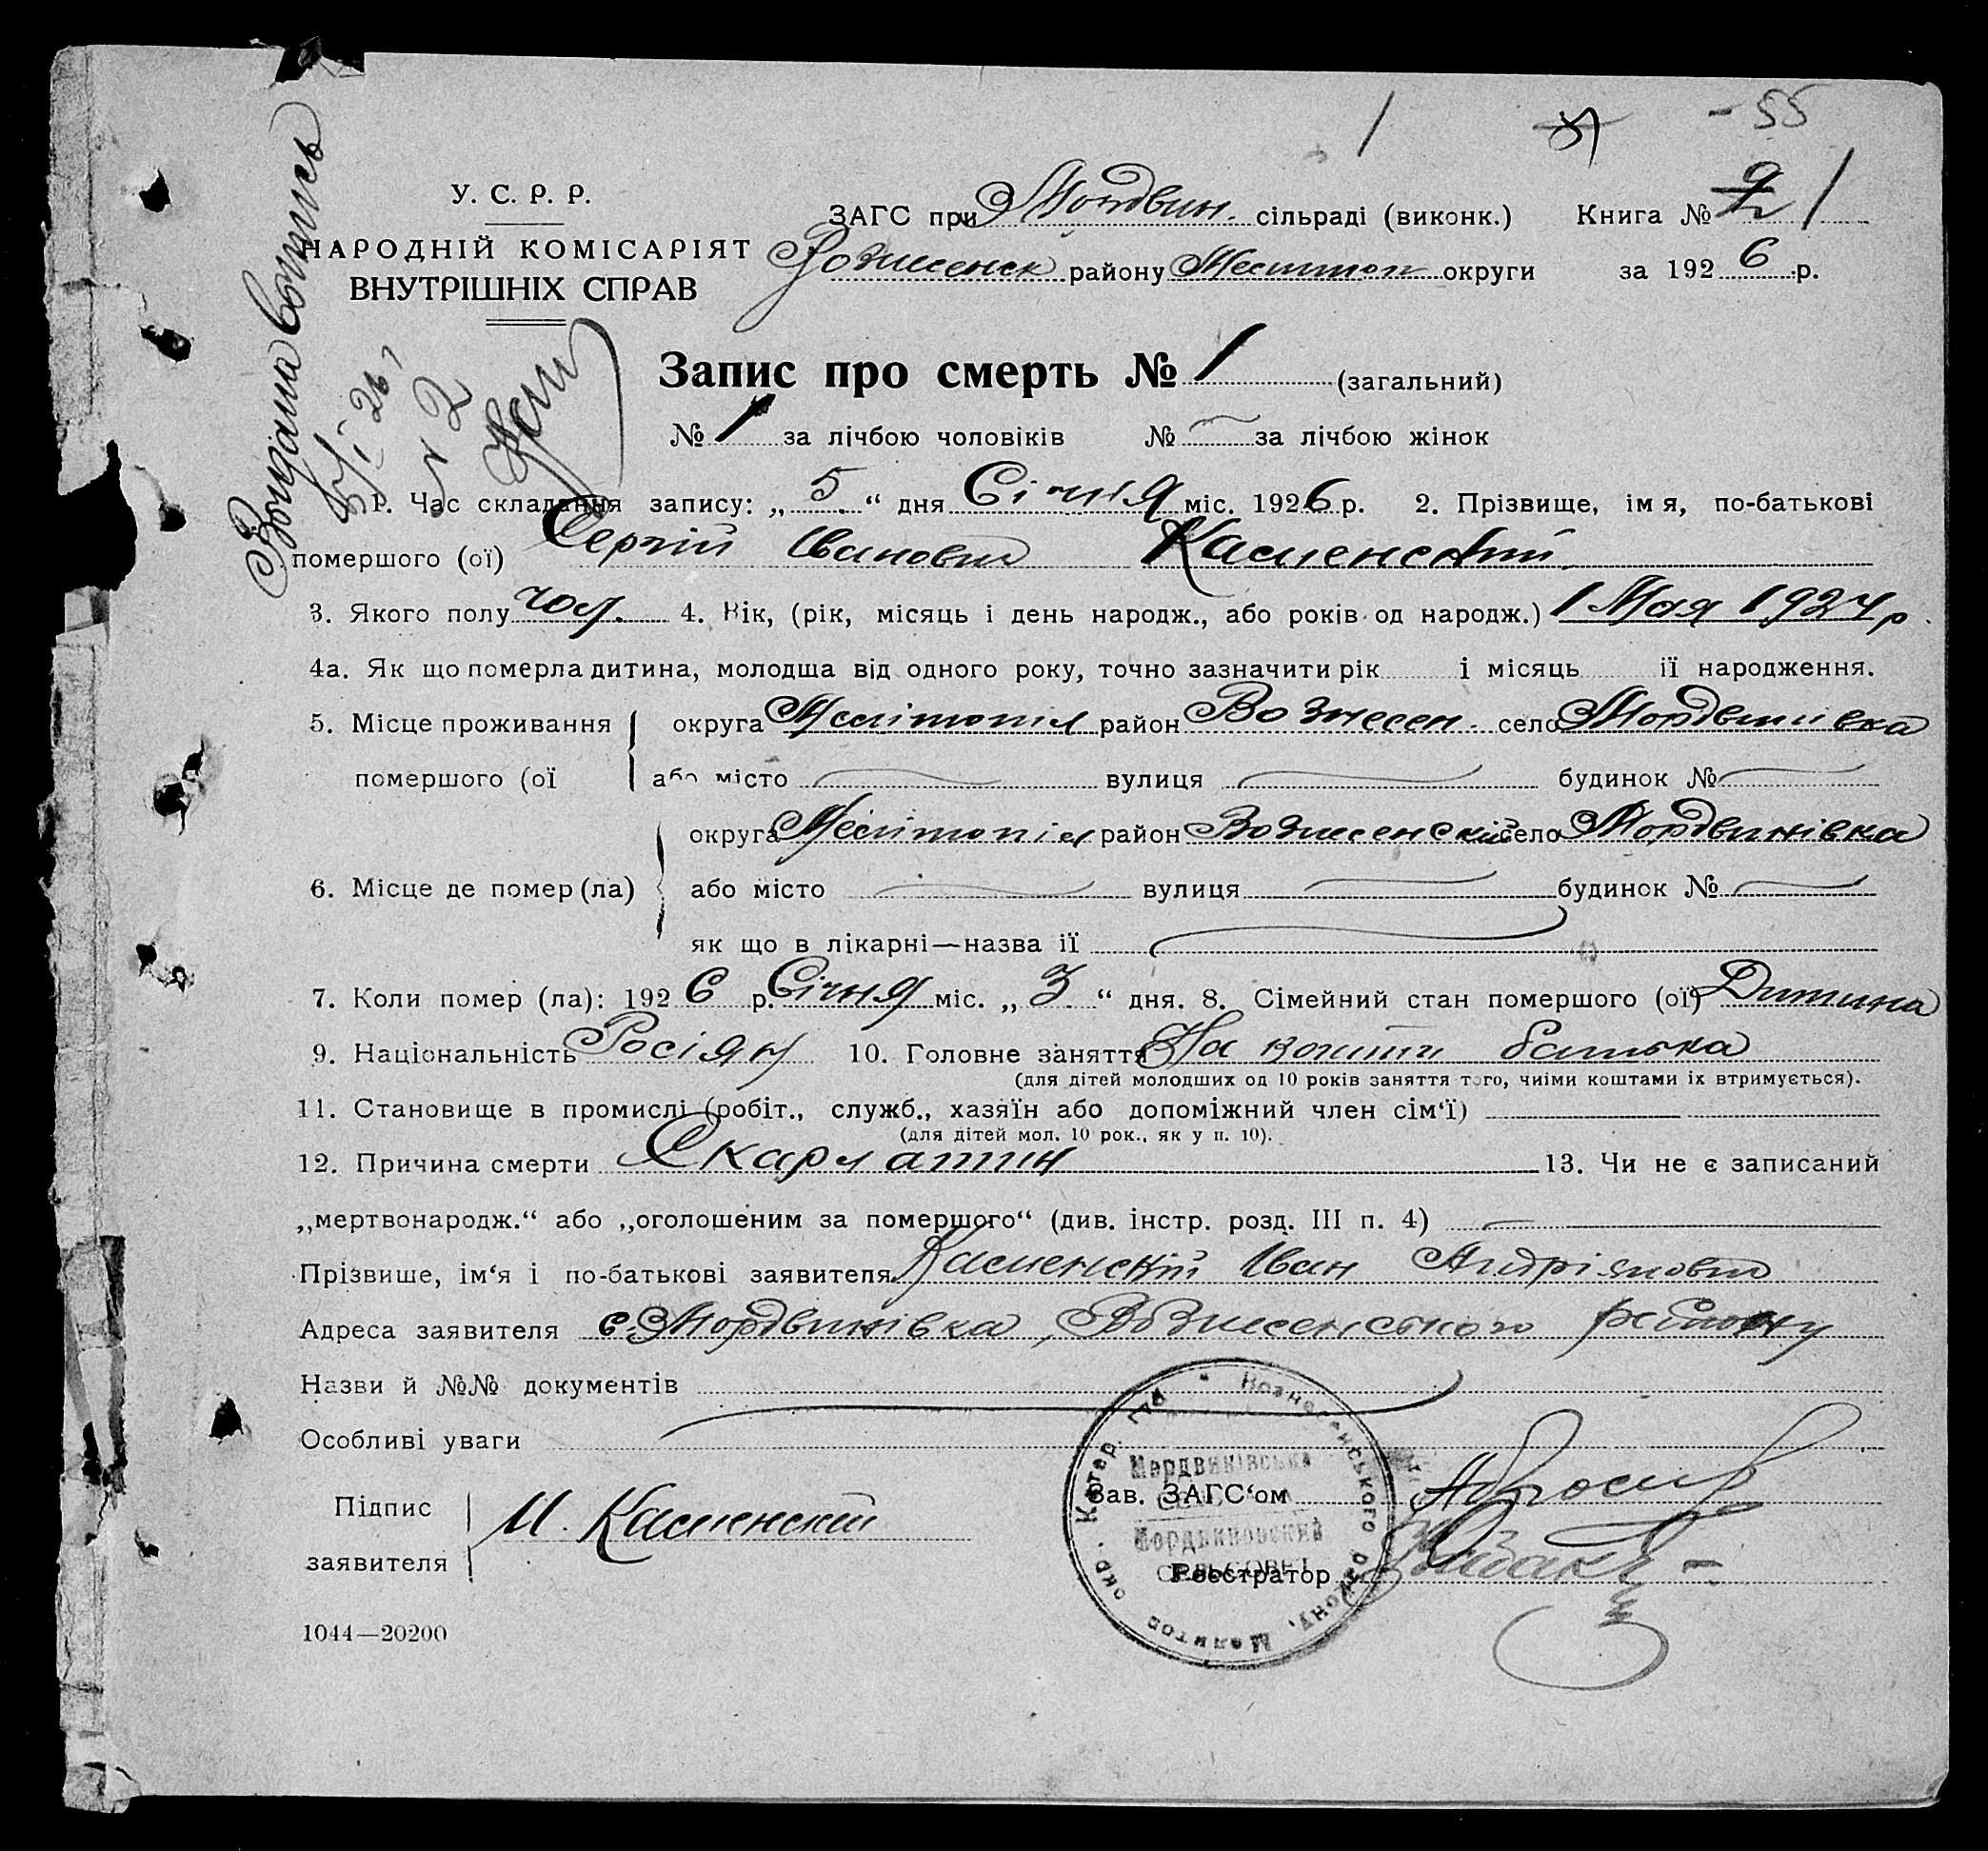 - 55
1
У. С. Р. Р.
НАРОДНІЙ КОМІСАРІЯТ
ВНУТРІШНІХ СПРАВ
ЗАГС при Мордвин. сільраді (виконк.) Книга № 1
Вознесенск району Мелитоп округи за 1926 р.
5/I 26
№ 2
Запис про смерть № 1 (загальний)
№ 1 за лічбою чоловіків № — за лічбою жінок
1. Час складання запису: „5“ дня Січня міс. 1926 р. 2. Прізвище, імя, по-батькові
помершого (ої) Сергій Іванович Каменський
3. Якого полу чол. 4. Вік, (рік, місяць і день народж., або років од народж.) 1 Мая 1924 р.
4а. Як що померла дитина, молодша від одного року, точно зазначити рік і місяць її народження.
5. Місце проживання округа Мелітопіл район Вознесен. село Мордвинівка
помершого (ої або місто — вулиця — будинок № —
округа Мелітопіл район Вознесенский село Мордвинівка
6. Місце де помер (ла) або місто — вулиця — будинок № —
як що в лікарні—назва її —
7. Коли помер (ла): 1926 р. Січня міс. „3“ дня. 8. Сімейний стан помершого (ої) Дитина
9. Національність Росіян 10. Головне заняття На кошти батька
(для дітей молодших од 10 років заняття того, чиїми коштами їх втримується).
11. Становище в промислі (робіт., служб., хазяїн або допоміжний член сім‘ї) —
(для дітей мол. 10 рок., як у п. 10).
12. Причина смерти Скарлатин 13. Чи не є записаний
„мертвонародж.“ або „оголошеним за помершого“ (див. інстр. розд. III п. 4) —
Прізвише, ім‘я і по-батькові заявителя Каменский Іван Андріянович
Адреса заявителя с. Мордвинівка, Вознесенського району
Назви й №№ документів
Особливі уваги
Підпис
заявителя
И. Каменский
Зав. ЗАГС‘ом
Реєстратор
Вознесенського району, Мелитоп. окр. Катер.
Мордвинівська
Мордвиновский
СЕЛЬСОВЕТ
1044—20200